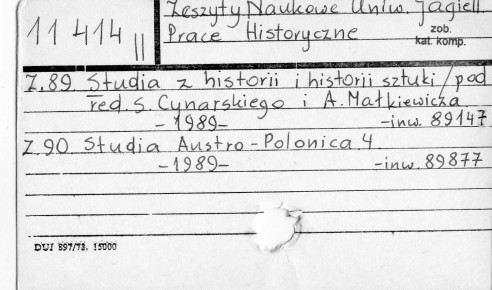 11 414 II
Zeszyty Naukowe Uniw. Jagiell.
Prace Historyczne
zob.
kat. komp.
Z.89 Studia z historii i historii sztuki / pod
red. S. Cynarskiego i A. Małkiewicza
-1989- -inw. 89147
Z.90 Studia Austro-Polonica 4
-1989- -inw. 89877
DUJ 897/78. 15000